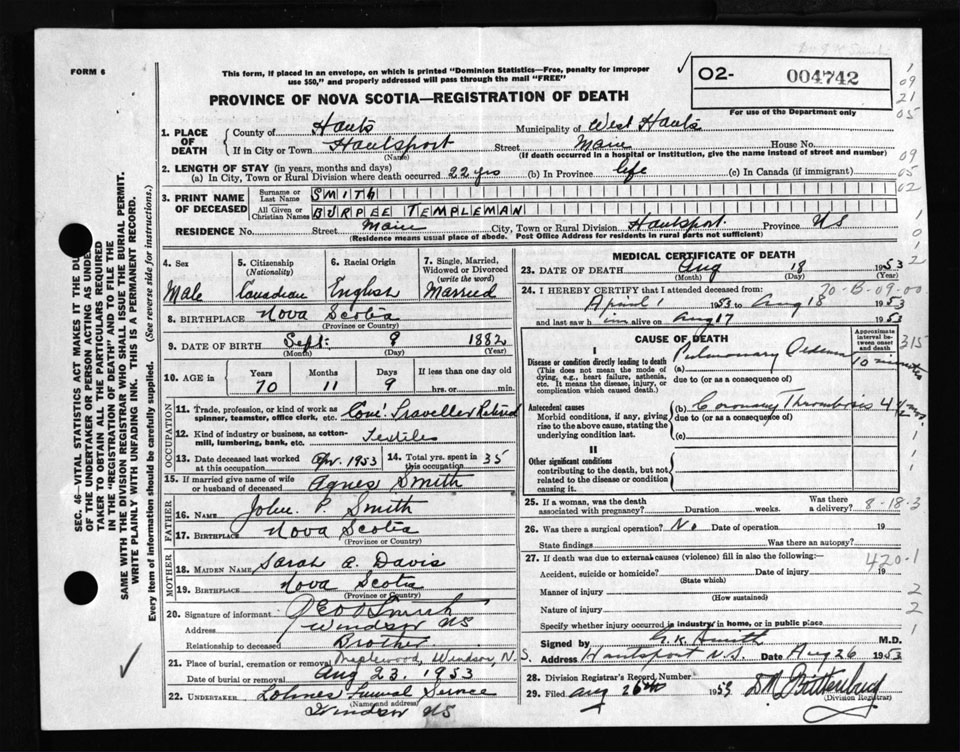 FORM 6
This form, if placed in an envelope, on which is printed "Dominion Statistics—Free, penalty for improper
use $50," and properly addressed will pass through the mail "FREE"
O2- 004742
For use of the Department only
PROVINCE OF NOVA SCOTIA—REGISTRATION OF DEATH
1. PLACE OF DEATH
County of Hants Municipality of West Hants
If in City or Town Hantsport Street Main House No.
(Name) (If death occurred in a hospital or institution, give the name instead of street and number)
2. LENGTH OF STAY (in years, months and days)
(a) In City, Town or Rural Division where death occurred 22 yrs (b) In Province life (c) In Canada (if immigrant)
3. PRINT NAME OF DECEASED
Surname or Last Name SMITH
All Given or Christian Names BURPEE TEMPLEMAN
RESIDENCE No. Street Main City, Town or Rural Division Hantsport Province NS
(Residence means usual place of abode. Post Office Address for residents in rural parts not sufficient)
4. Sex Male
5. Citizenship (Nationality) Canadian
6. Racial Origin English
7. Single, Married, Widowed or Divorced (write the word) Married
8. BIRTHPLACE Nova Scotia
(Province or Country)
9. DATE OF BIRTH Sept. 9 1882
(Month) (Day) (Year)
10. AGE in Years 70 Months 11 Days 9 If less than one day old hrs. or min.
OCCUPATION
11. Trade, profession, or kind of work as spinner, teamster, office clerk, etc. Com'l Traveller Retired
12. Kind of industry or business, as cotton-mill, lumbering, bank, etc. Textiles
13. Date deceased last worked at this occupation Apr. 1953 14. Total yrs. spent in this occupation 35
15. If married give name of wife or husband of deceased Agnes Smith
FATHER
16. NAME John P. Smith
17. BIRTHPLACE Nova Scotia
(Province or Country)
MOTHER
18. MAIDEN NAME Sarah A. Davis
19. BIRTHPLACE Nova Scotia
(Province or Country)
20. Signature of informant Geo D Smith
Address Windsor NS
Relationship to deceased Brother
21. Place of burial, cremation or removal Maplewood, Windsor, N.S.
Date of burial or removal Aug 23, 1953
22. UNDERTAKER Lohnes Funeral Service
(Name and address)
Windsor NS
MEDICAL CERTIFICATE OF DEATH
23. DATE OF DEATH Aug 18 1953
(Month) (Day) (Year)
24. I HEREBY CERTIFY that I attended deceased from:
70-B-09-00
April 1 1953 to Aug 18 1953
and last saw him alive on Aug 17 1953
CAUSE OF DEATH
Approximate interval between onset and death
315
I
Disease or condition directly leading to death
(This does not mean the mode of dying, e.g., heart failure, asthenia, etc. It means the disease, injury, or complication which caused death.)
(a) Pulmonary Oedema 10 minutes
due to (or as a consequence of)
Antecedent causes
Morbid conditions, if any, giving rise to the above cause, stating the underlying condition last.
(b) Coronary Thrombosis 4 1/2 mos.
due to (or as a consequence of)
(c)
II
Other significant conditions
contributing to the death, but not related to the disease or condition causing it.
25. If a woman, was the death associated with pregnancy? Duration weeks. Was there a delivery?
8-18-3
26. Was there a surgical operation? No Date of operation 19
State findings Was there an autopsy?
27. If death was due to external causes (violence) fill in also the following:—
420-1
Accident, suicide or homicide? Date of injury 19
(State which)
Manner of injury
(How sustained)
Nature of injury
Specify whether injury occurred in industry, in home, or in public place
Signed by G. K. Smith M.D.
Address Hantsport N.S. Date Aug 26 1953
28. Division Registrar's Record Number
29. Filed Aug 26th 1953
(Division Registrar)
SEC. 46—VITAL STATISTICS ACT MAKES IT THE DU
OF THE UNDERTAKER OR PERSON ACTING AS UNDER
TAKER TO OBTAIN ALL THE PARTICULARS REQUIRED
IN THE "REGISTRATION OF DEATH" AND TO FILE THE
SAME WITH THE DIVISION REGISTRAR WHO SHALL ISSUE THE BURIAL PERMIT.
WRITE PLAINLY WITH UNFADING INK. THIS IS A PERMANENT RECORD.
Every item of information should be carefully supplied. (See reverse side for instructions.)
1
09
21
05
09
05
02
1
0
1
2
1
1
1
2
2
1